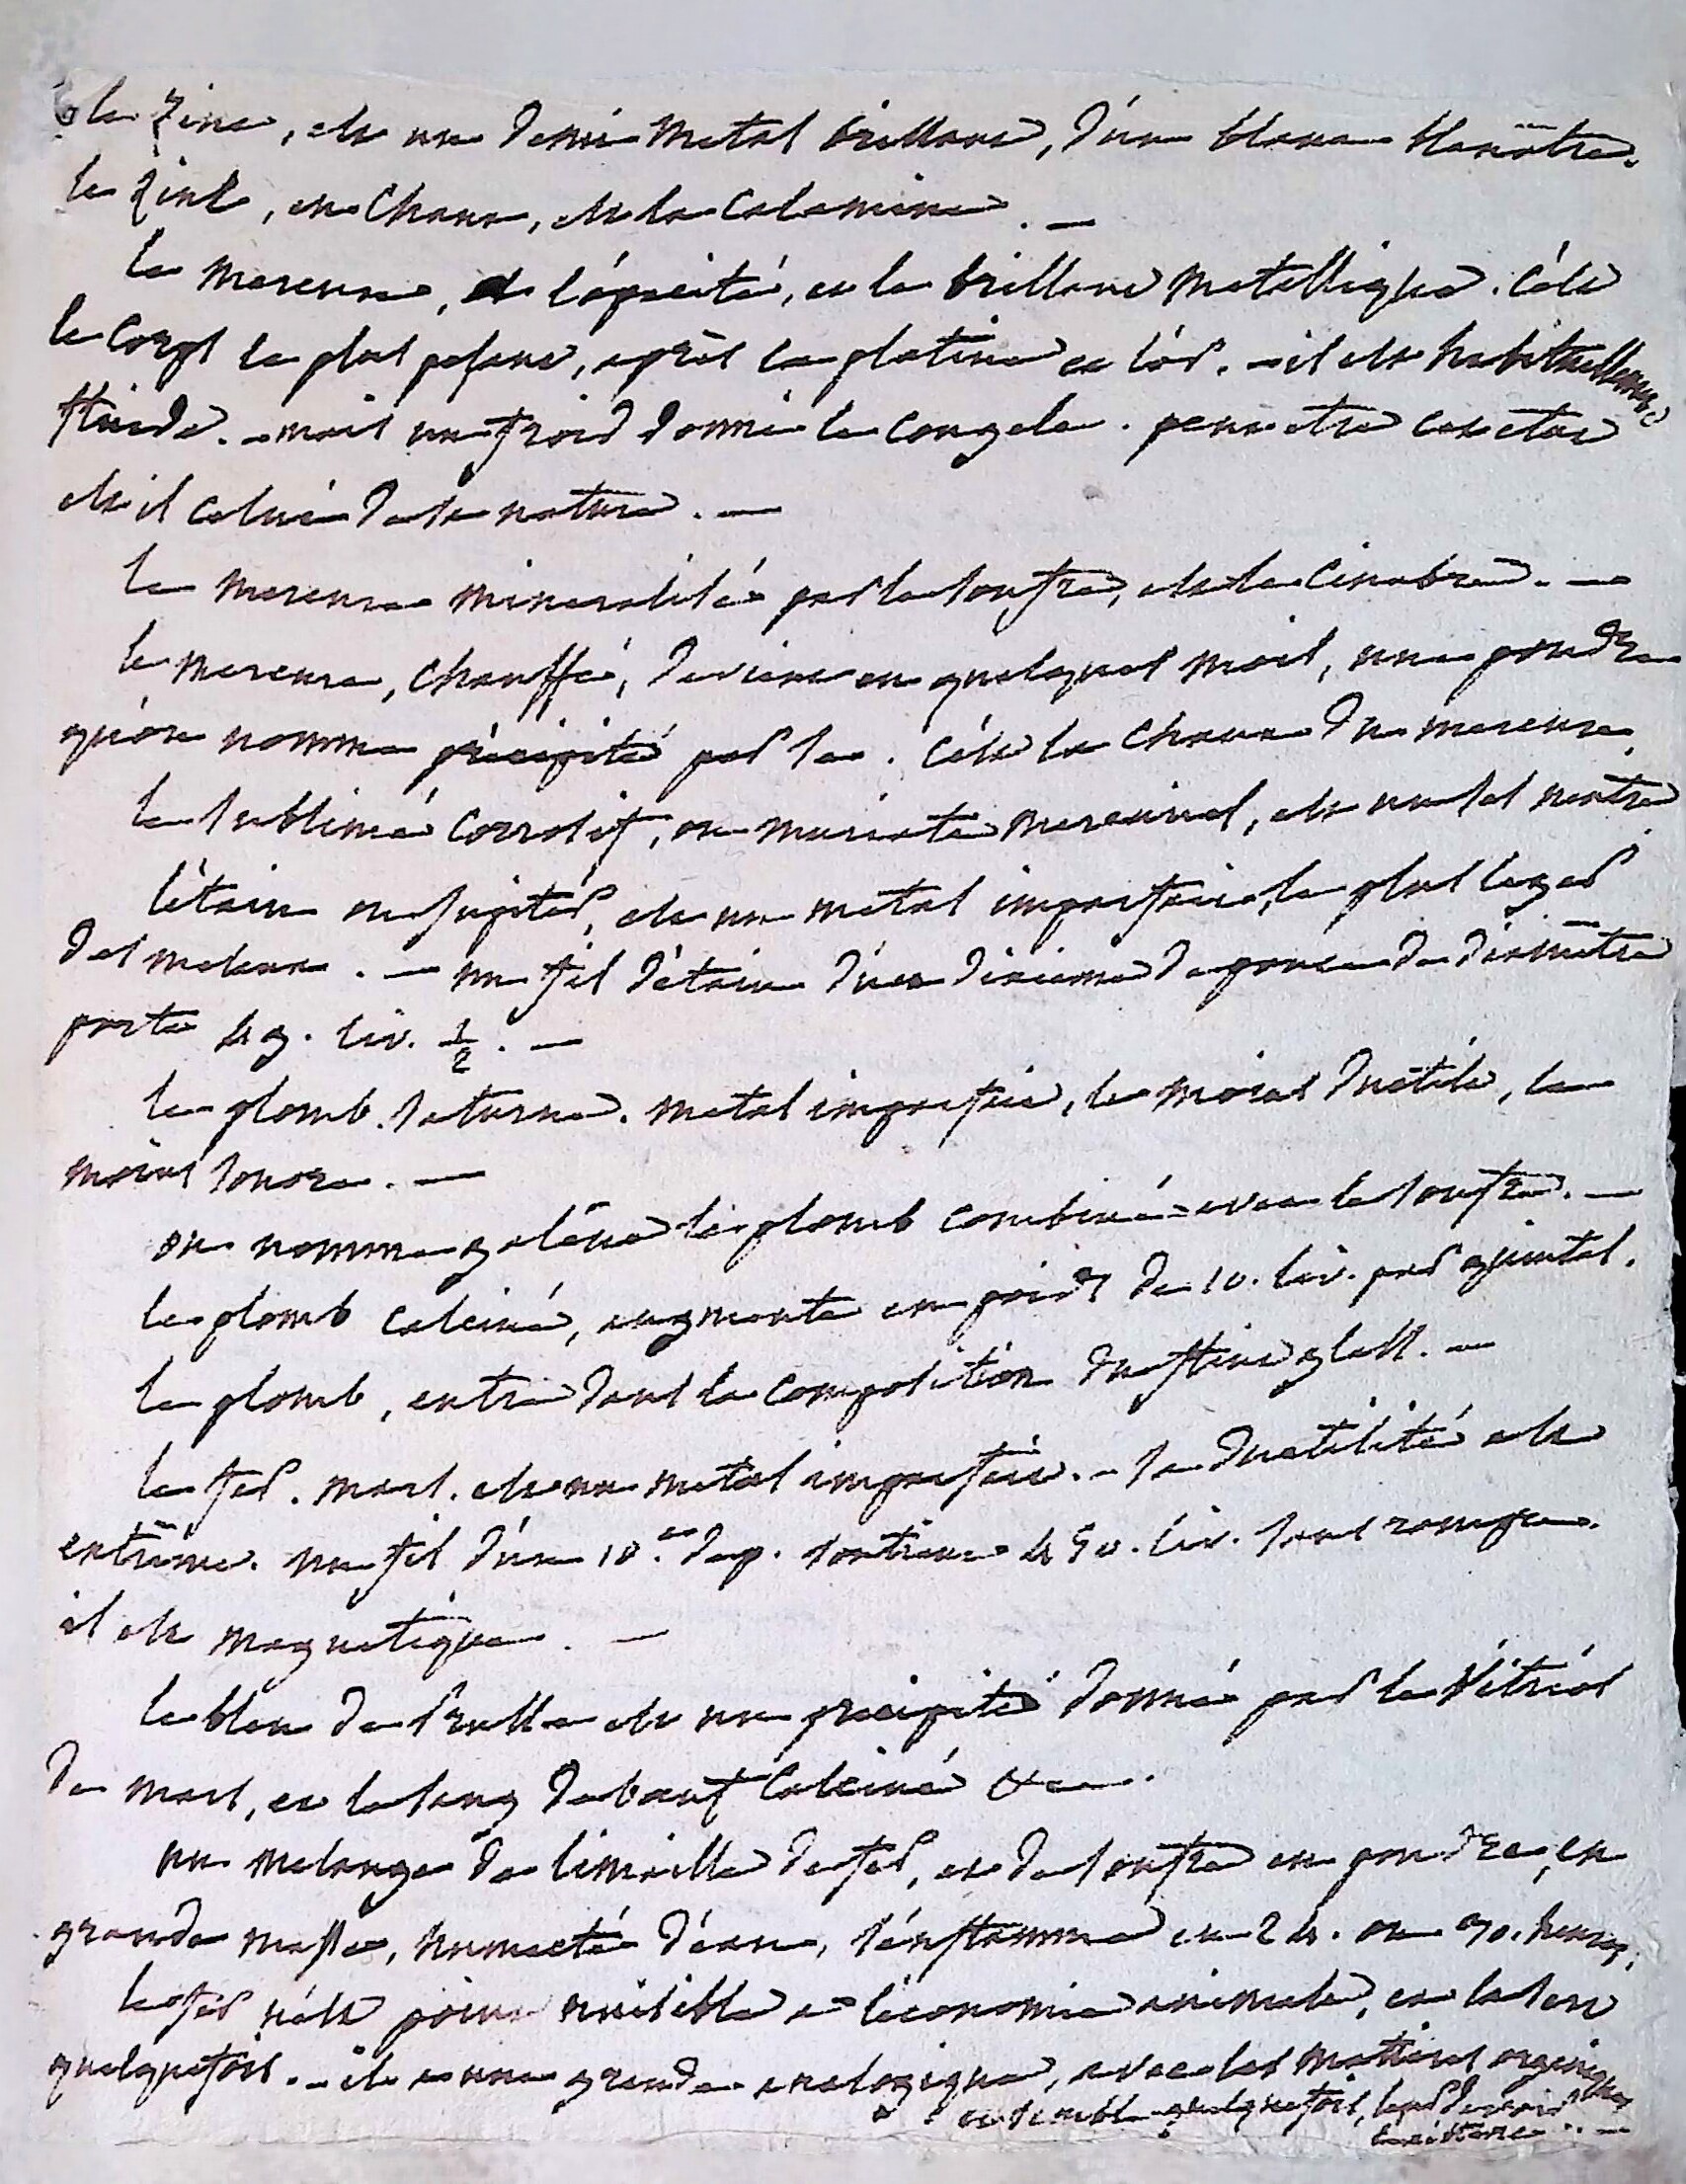 le zinc, est un demi metal brillant, d'un blanc bleuâtre.
le zinc, en chaux, est la calamine. —
le mercure, a l'opacité, et le brillant metallique. c'est
le corps le plus pesant, après la platine et l'or. - il est habituellement
fluide. - mais un froid donné le congele. peut etre cet etat
est il celui de la nature. —
le mercure mineralisé par le soufre, est le cinabre. —
le mercure, chauffé, devient en quelques mois, une poudre
qu'on nomme précipité per se. c'est la chaux du mercure.
le sublimé corrosif, ou muriate mercuriel, est un sel neutre
l'étain ou jupiter, est un metal imparfait, le plus leger
des metaux. — un fil d'étain d'un dixieme de pouce de diamètre
porte 49. liv. 1/2. —
le plomb. saturne. metal imparfait, le moins ductile, le
moins sonore. —
on nomme galène le plomb combiné avec le soufre. —
le plomb calciné, augmente en poids de 10. liv. par quintal.
le plomb, entre dans la composition du flint glass. —
le fer. mars. est un metal imparfait. - sa ductilité est
extrême. un fil d'un 10.e de p. soutient 450. liv. sans rompre.
il est magnetique. —
le bleu de Prusse est un precipité donné par le vitriol
de mars, et le sang de bœuf calciné &c.
un melange de limaille de fer, et de soufre en poudre, en
grande masse, humecté d'eau, s'enflamme en 24. ou 30. heures.
le fer n'est point nuisible a l'économie animale, et la sert
quelquefois. - il a une grande analogique, avec les matieres organiques
et semble quelquefois, leur devoir
l'existence. —